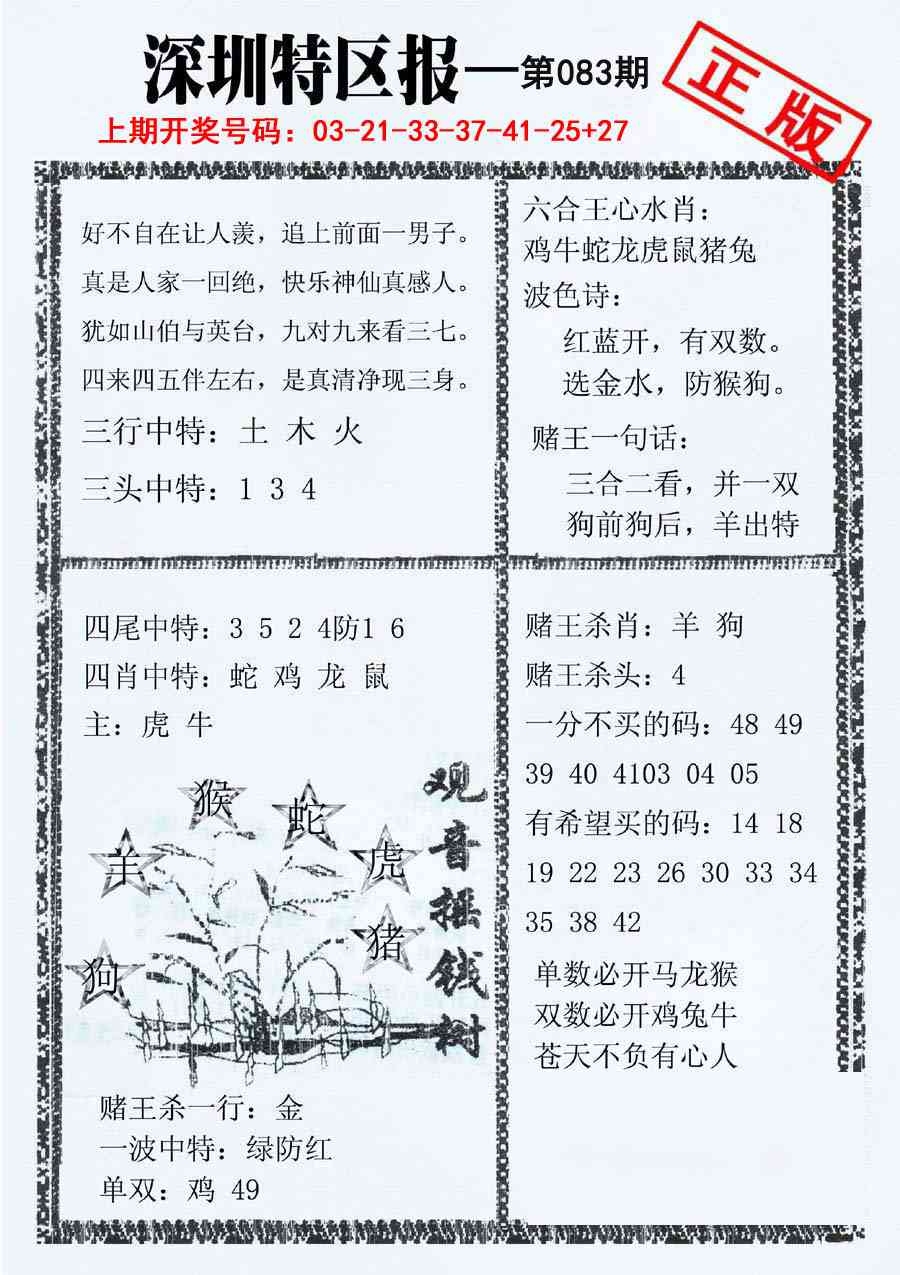 深圳特区报—第083期
正版
上期开奖号码：03-21-33-37-41-25+27
好不自在让人羡，追上前面一男子。
真是人家一回绝，快乐神仙真感人。
犹如山伯与英台，九对九来看三七。
四来四五伴左右，是真清净现三身。
三行中特：土 木 火
三头中特：1 3 4
六合王心水肖：
鸡牛蛇龙虎鼠猪兔
波色诗：
红蓝开，有双数。
选金水，防猴狗。
赌王一句话：
三合二看，并一双
狗前狗后，羊出特
四尾中特：3 5 2 4防1 6
四肖中特：蛇 鸡 龙 鼠
主：虎 牛
猴
蛇
羊
虎
猪
狗
观音摇钱树
赌王杀一行：金
一波中特：绿防红
单双：鸡 49
赌王杀肖：羊 狗
赌王杀头：4
一分不买的码：48 49
39 40 4103 04 05
有希望买的码：14 18
19 22 23 26 30 33 34
35 38 42
单数必开马龙猴
双数必开鸡兔牛
苍天不负有心人